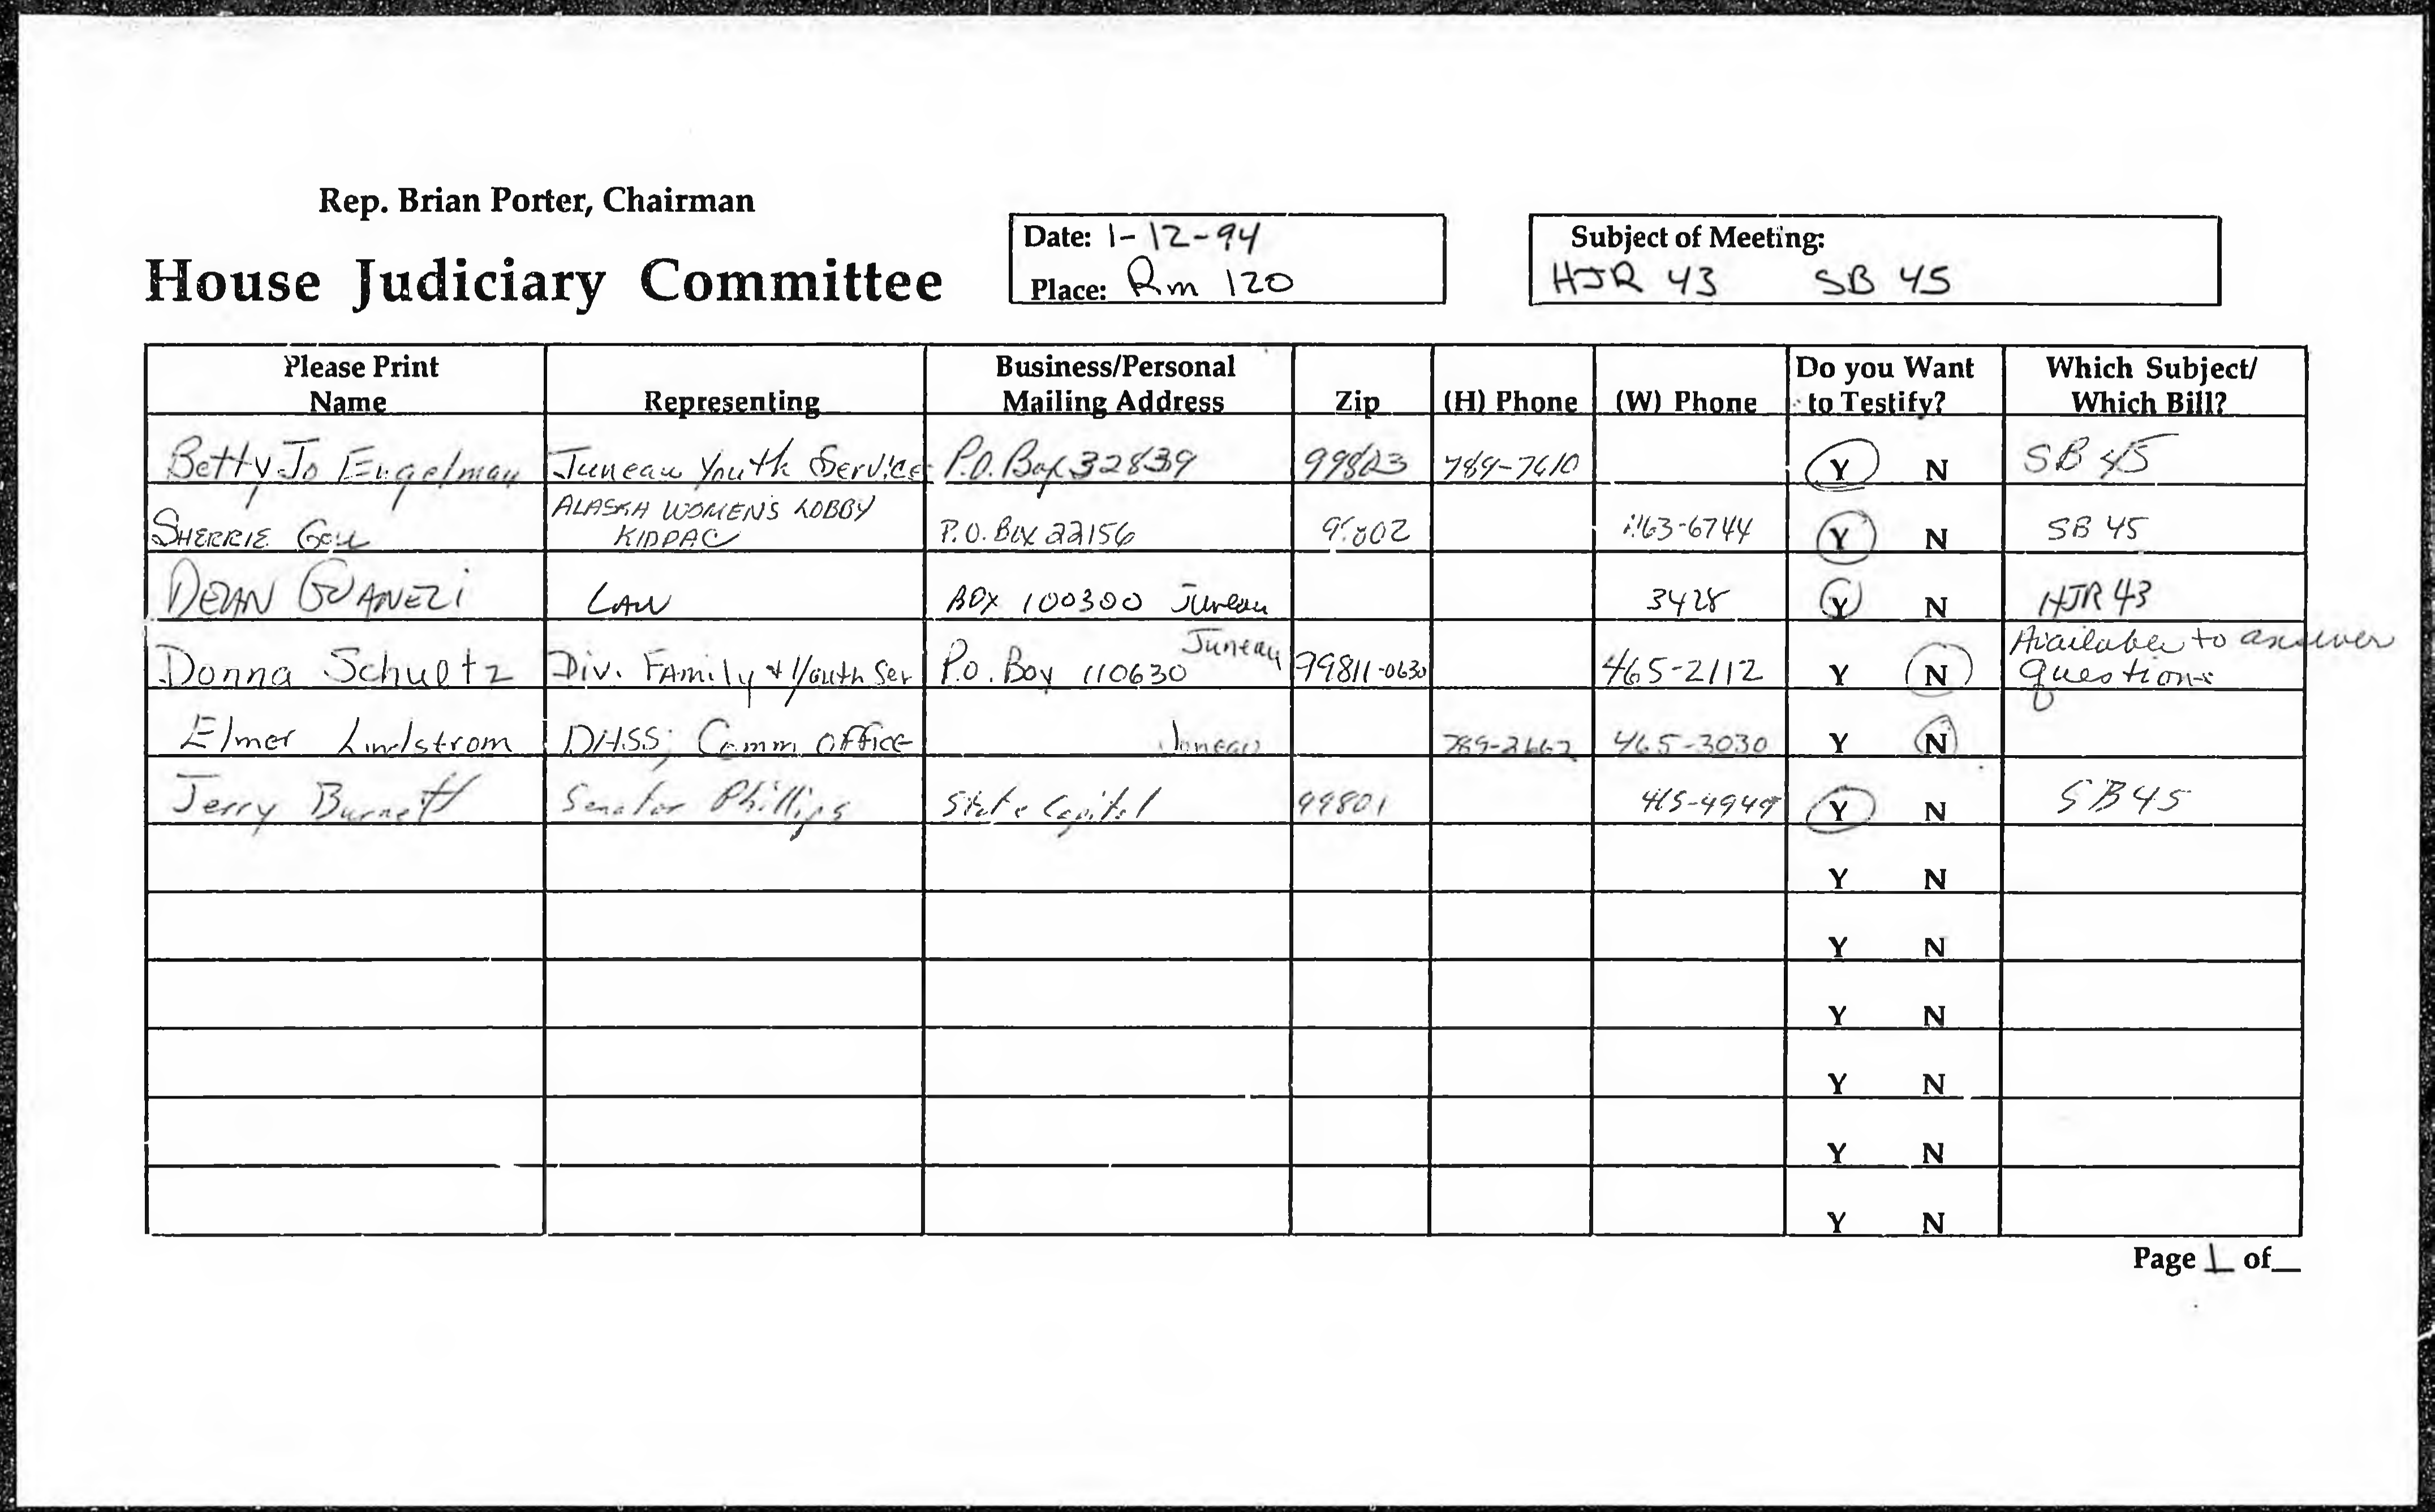 Rep. Brian Porter, Chairman
House Judiciary Committee
Date: 1-12-94
Place: Rm 120
Subject of Meeting:
HJR 43 SB 45
Please Print Name Representing Business/Personal Mailing Address Zip (H) Phone (W) Phone Do you Want to Testify? Which Subject/ Which Bill?
Betty Jo Engelman Juneau Youth Services P.O. Box 32839 99803 789-7610 Y N SB 45
SHERRIE GOLL ALASKA WOMEN'S LOBBY KIDPAC P.O. Box 22156 463-6744 Y N SB 45
DEAN GUANELI LAW BOX 100300 Juneau 3428 Y N HJR 43
Donna Schultz Div. Family & Youth Ser P.O. Box 110630 Juneau 99811-0630 465-2112 Y N Available to answer questions
Elmer Lindstrom DHSS; Comm office Juneau 465-3030 Y N
Jerry Burnett Senator Phillips State Capitol 99801 465-4949 Y N SB45
Y N
Y N
Y N
Y N
Y N
Y N
Page 1 of